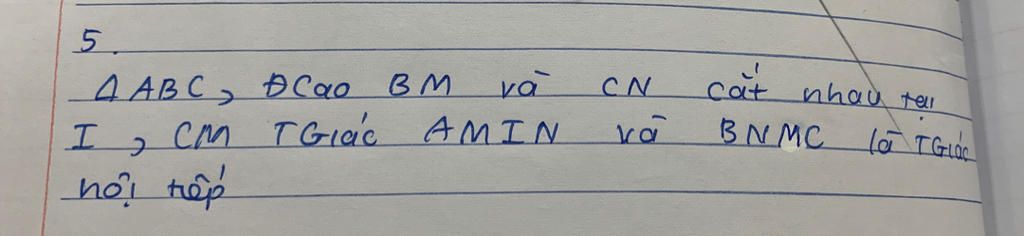 5.
Δ ABC, ĐCao BM và CN cắt nhau tại
I, CM TGiác AMIN và BNMC là TGiác
nội tiếp